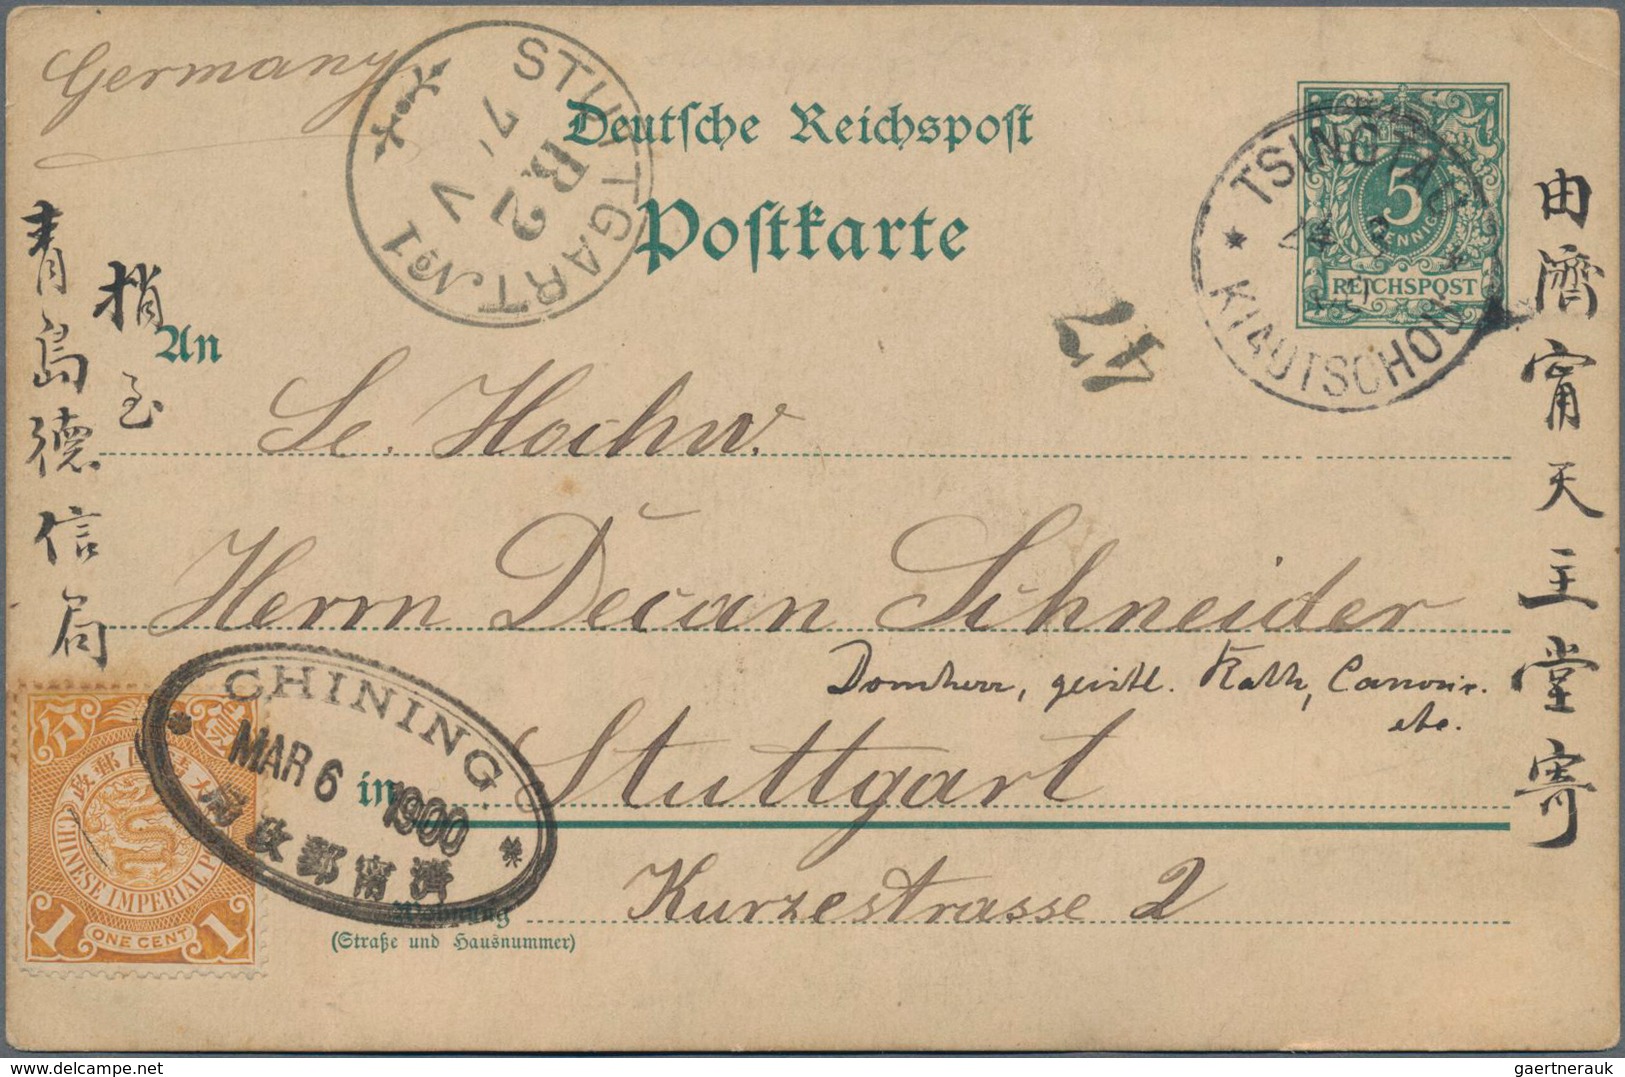 Germany
STUTTGART No 1
B.2
V
Deutsche Reichspost
Postkarte
5
PFENNIG
REICHSPOST
TSINGTAU
KIAUTSCHOU
47
由濟甯天主堂寄
捎至
青島德信局
An
Se. Hochw.
Herrn Decan Schneider
Domherr, geistl. Rath, Canonic.
etc.
in Stuttgart
Kurzestrasse 2
Wohnung
(Straße und Hausnummer)
CHINING
MAR 6 1900
局政郵甯濟
CHINESE IMPERIAL POST
1 ONE CENT 1
gaertnerauk